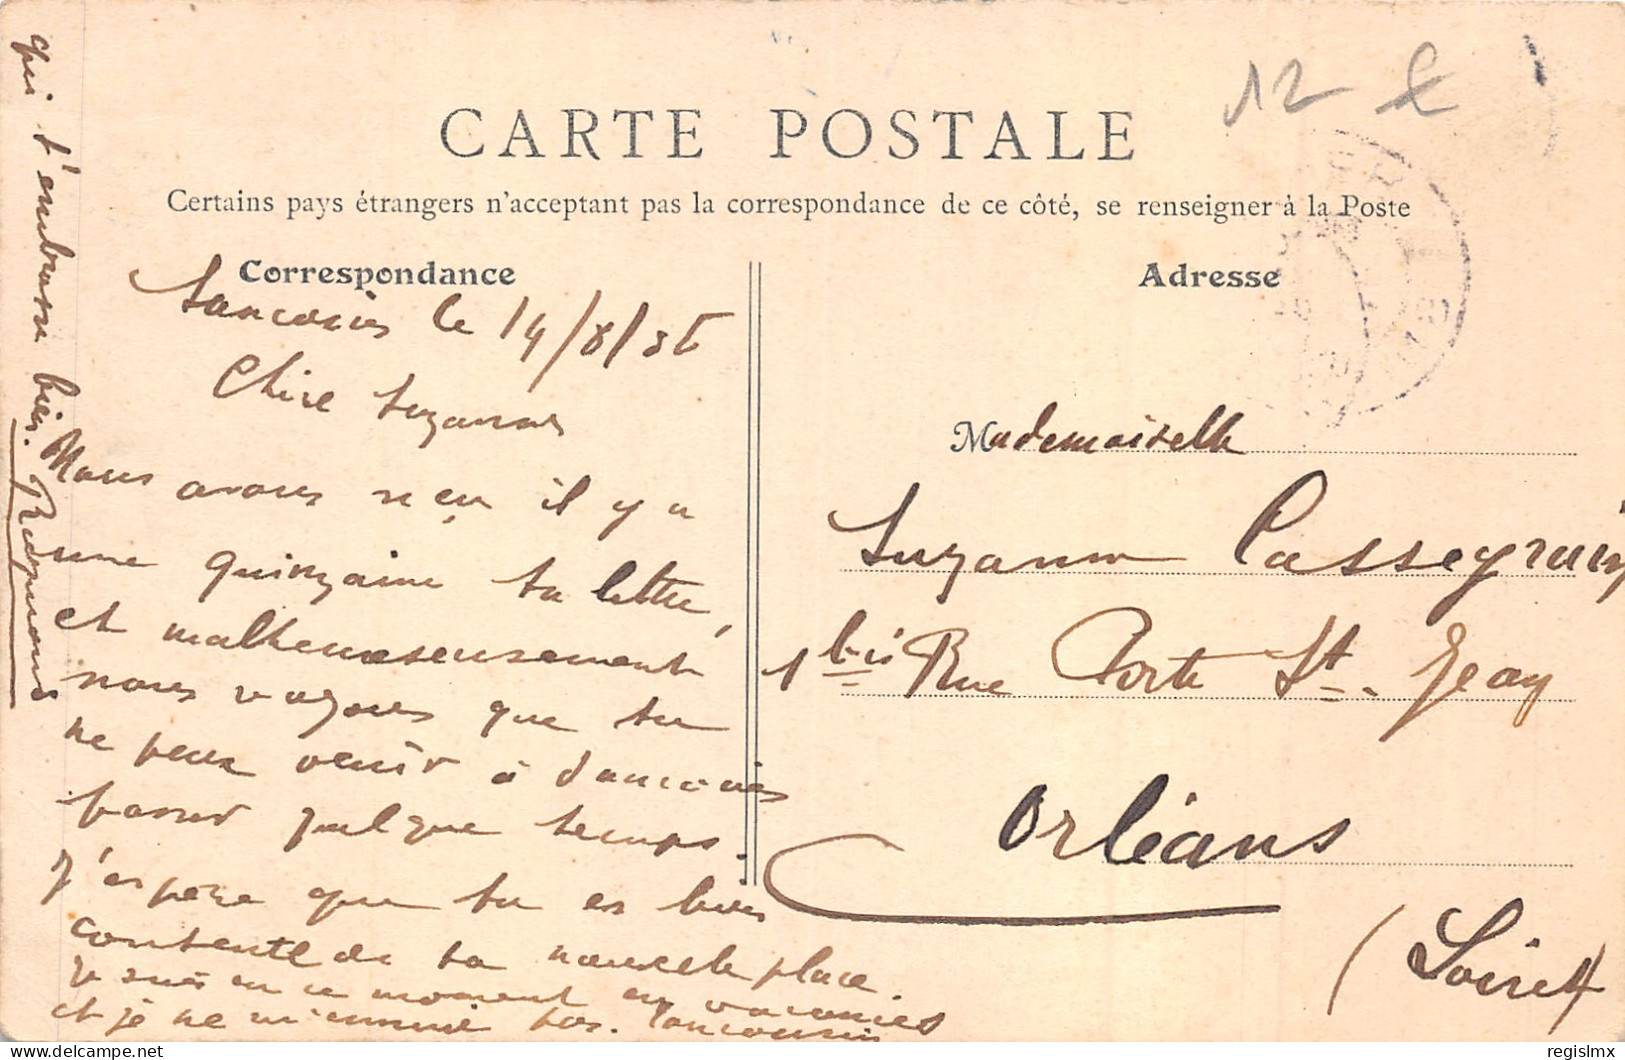 12 €
CARTE POSTALE
Certains pays étrangers n'acceptant pas la correspondance de ce côté, se renseigner à la Poste
Correspondance
Sancoins le 14/8/
Chère Suzanne
Nous avons reçu il y a
une quinzaine ta lettre,
et malheureusement
nous voyons que tu
ne peux venir à Sancoins
passer quelque temps.
J'espère que tu es bien
contente de ta nouvelle place.
Je suis en ce moment en vacances
et je ne m'ennuie pas. Ton cousin
qui t'embrasse bien.
Adresse
Mademoiselle
Suzanne Cassegrain
1 bis Rue Porte St. Jean
Orléans
(Loiret
regislmx